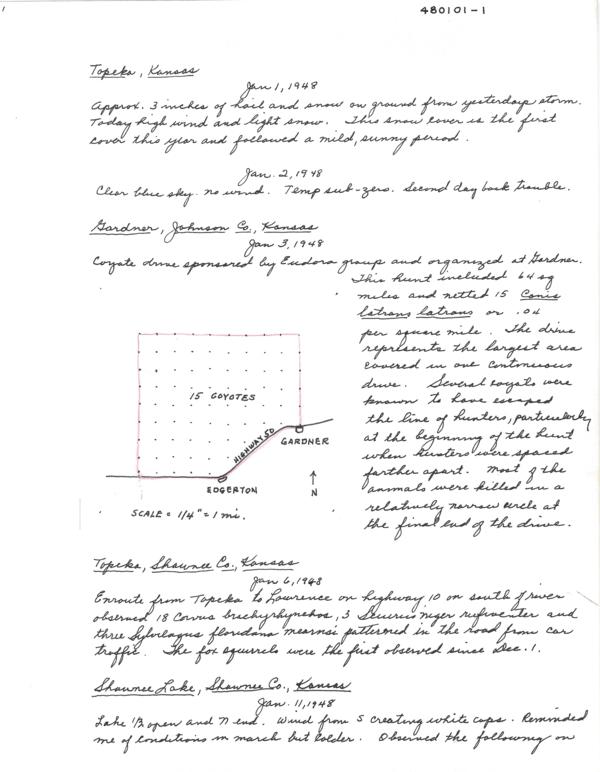 480101-1
Topeka, Kansas
Jan 1, 1948
Approx. 3 inches of hail and snow on ground from yesterdays storm.
Today high wind and light snow. This snow cover is the first
cover this year and followed a mild, sunny period.
Jan. 2, 1948
Clear blue sky. no wind. Temp sub-zero. Second day back trouble.
Gardner, Johnson Co., Kansas
Jan 3, 1948
Coyote drive sponsored by Eudora group and organized at Gardner.
This hunt included 64 sq
miles and netted 15 Canis
latrans latrans or .04
per square mile. The drive
represents the largest area
covered in one continuous
drive. Several coyots were
known to have escaped
the line of hunters, particularly
at the beginning of the hunt
when hunters were spaced
farther apart. Most of the
animals were killed in a
relatively narrow circle at
the final end of the drive.
15 COYOTES
HIGHWAY 50
GARDNER
EDGERTON
N
SCALE = 1/4" = 1 mi.
Topeka, Shawnee Co., Kansas
Jan 6, 1948
Enroute from Topeka to Lawrence on highway 10 on south of river
observed 18 Corvus brachyrhynchos, 3 Sciurus niger rufiventer and
three Sylvilagus floridana mearnsi patterned in the road from car
traffic. The fox squirrels were the first observed since Dec. 1.
Shawnee Lake, Shawnee Co., Kansas
Jan. 11, 1948
Lake 1/2 open and N end. Wind from S creating white caps. Reminded
me of conditions in march but colder. Observed the following on